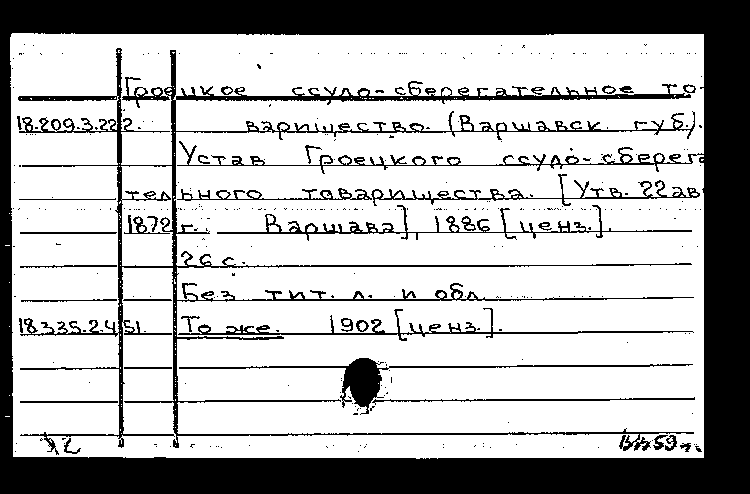 Гроецкое ссудо-сберегательное то-
18.209.3.222. варищество. (Варшавск. губ.).
Устав Гроецкого ссудо-сберега
тельного товарищества. [Утв. 22 ав
1872 г. Варшава], 1886 [ценз.].
26 с.
Без тит. л. и обл.
18.335.2.451. То же. 1902 [ценз.].